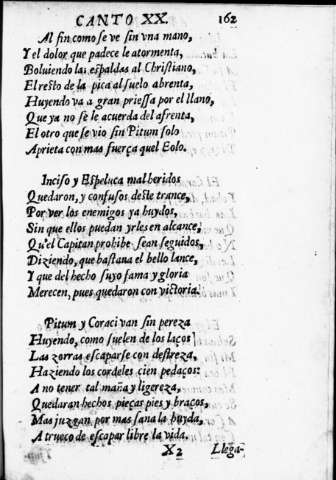 CANTO XX. 162
Al fin como se ve sin vna mano,
Y el dolor que padece le atormenta,
Boluiendo las espaldas al Christiano,
El resto de la pica al suelo abrenta,
Huyendo va a gran priessa por el llano,
Que ya no se le acuerda del afrenta,
El otro que se vio sin Pitum solo
Aprieta con mas fuerça quel Eolo.
Inciso y Espeluca mal heridos
Quedaron, y confusos deste trance,
Por ver los enemigos ya huydos,
Sin que ellos puedan yrles en alcance,
Qu'el Capitan prohibe sean seguidos,
Diziendo, que bastaua el bello lance,
Y que del hecho suyo fama y gloria
Merecen, pues quedaron con victoria.
Pitum y Coraci van sin pereza
Huyendo, como suelen de los laços
Las zorras escaparse con destreza,
Haziendo los cordeles cien pedaços:
A no tener tal maña y ligereza,
Quedaran hechos pieças pies y braços,
Mas juzgan por mas sana la huyda,
A trueco de escapar libre la vida.
X2 Llega-